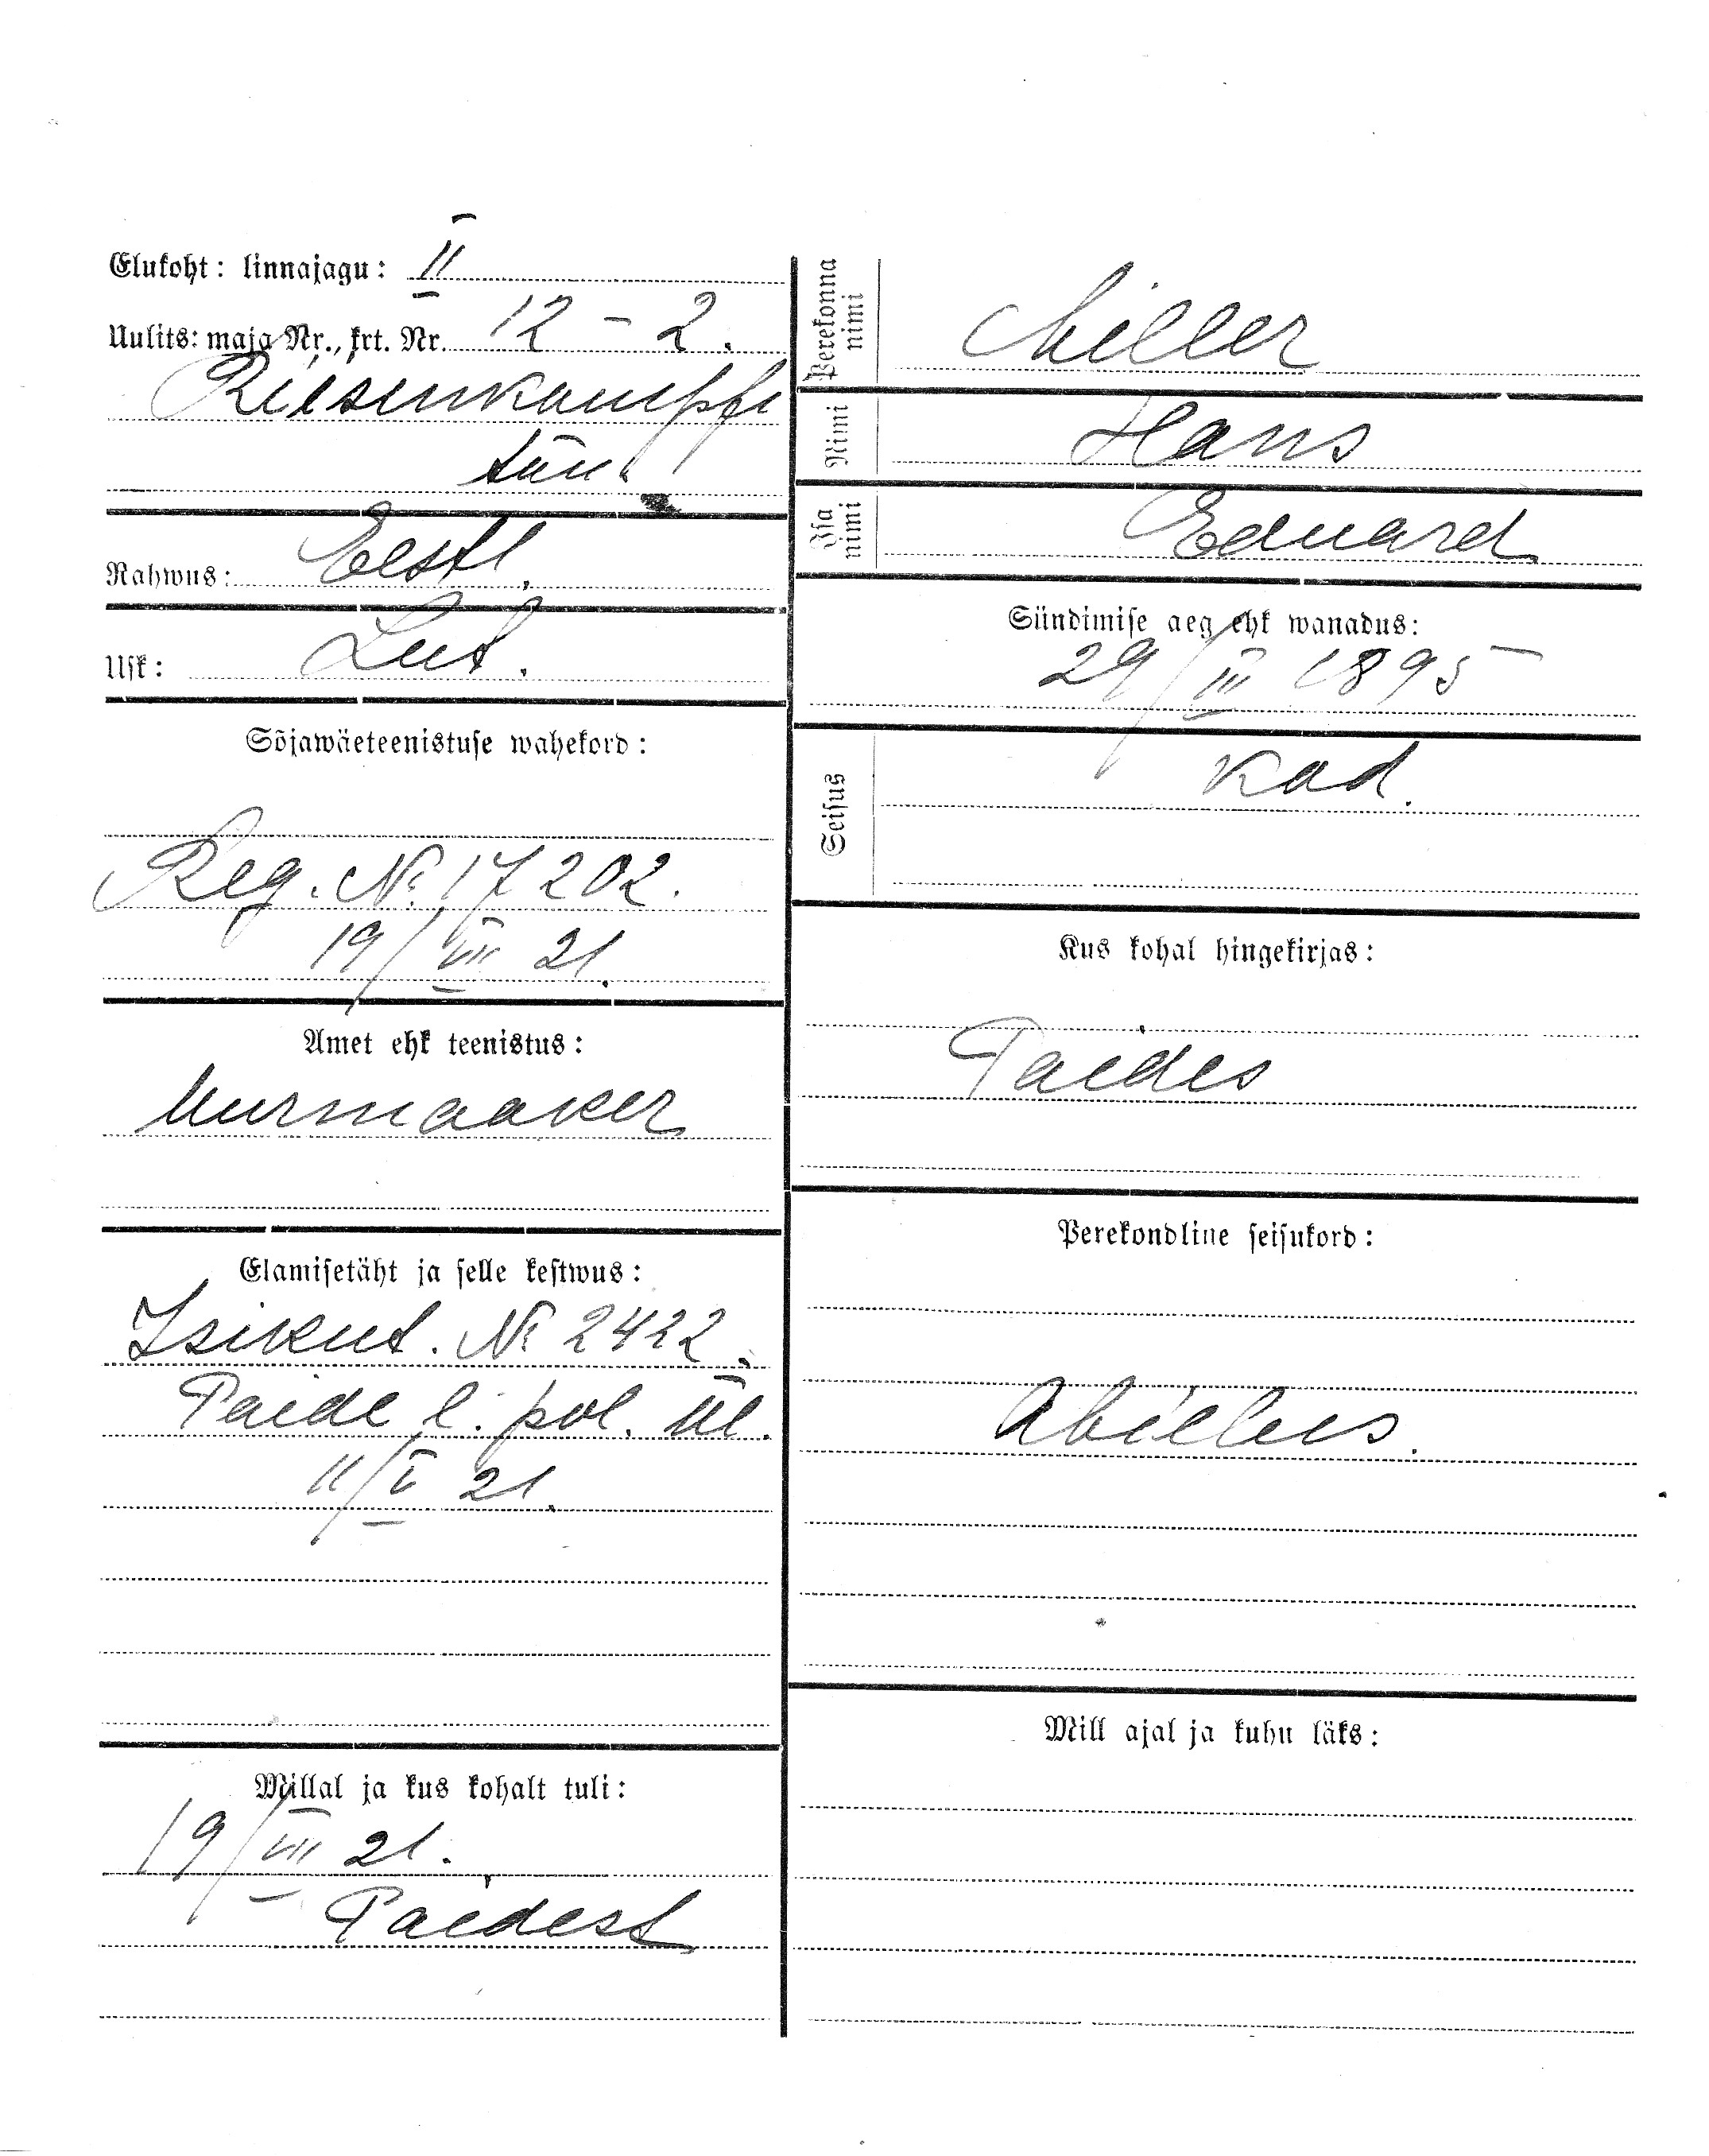 Elukoht: linnajagu: II
Uulits: maja Nr., krt. Nr. 12 - 2.
Riesenkampfi
tän.
Rahwus: Eestl.
Usk: Lut.
Sõjawäeteenistuse wahekord:
Reg. № 17202.
19/VII 21.
Amet ehk teenistus:
Uurmaaker
Elamisetäht ja selle kestwus:
Isikut. № 2422.
Paide l. pol. ül.
11/V 21.
Millal ja kus kohalt tuli:
19/VII 21.
Paidest
Perekonna nimi
Miller
Nimi
Hans
Isa nimi
Eduard
Sündimise aeg ehk wanadus:
29/III 1895
Seisus
Kod.
Kus kohal hingekirjas:
Paides
Perekondline seisukord:
Abielus.
Mill ajal ja kuhu läks: